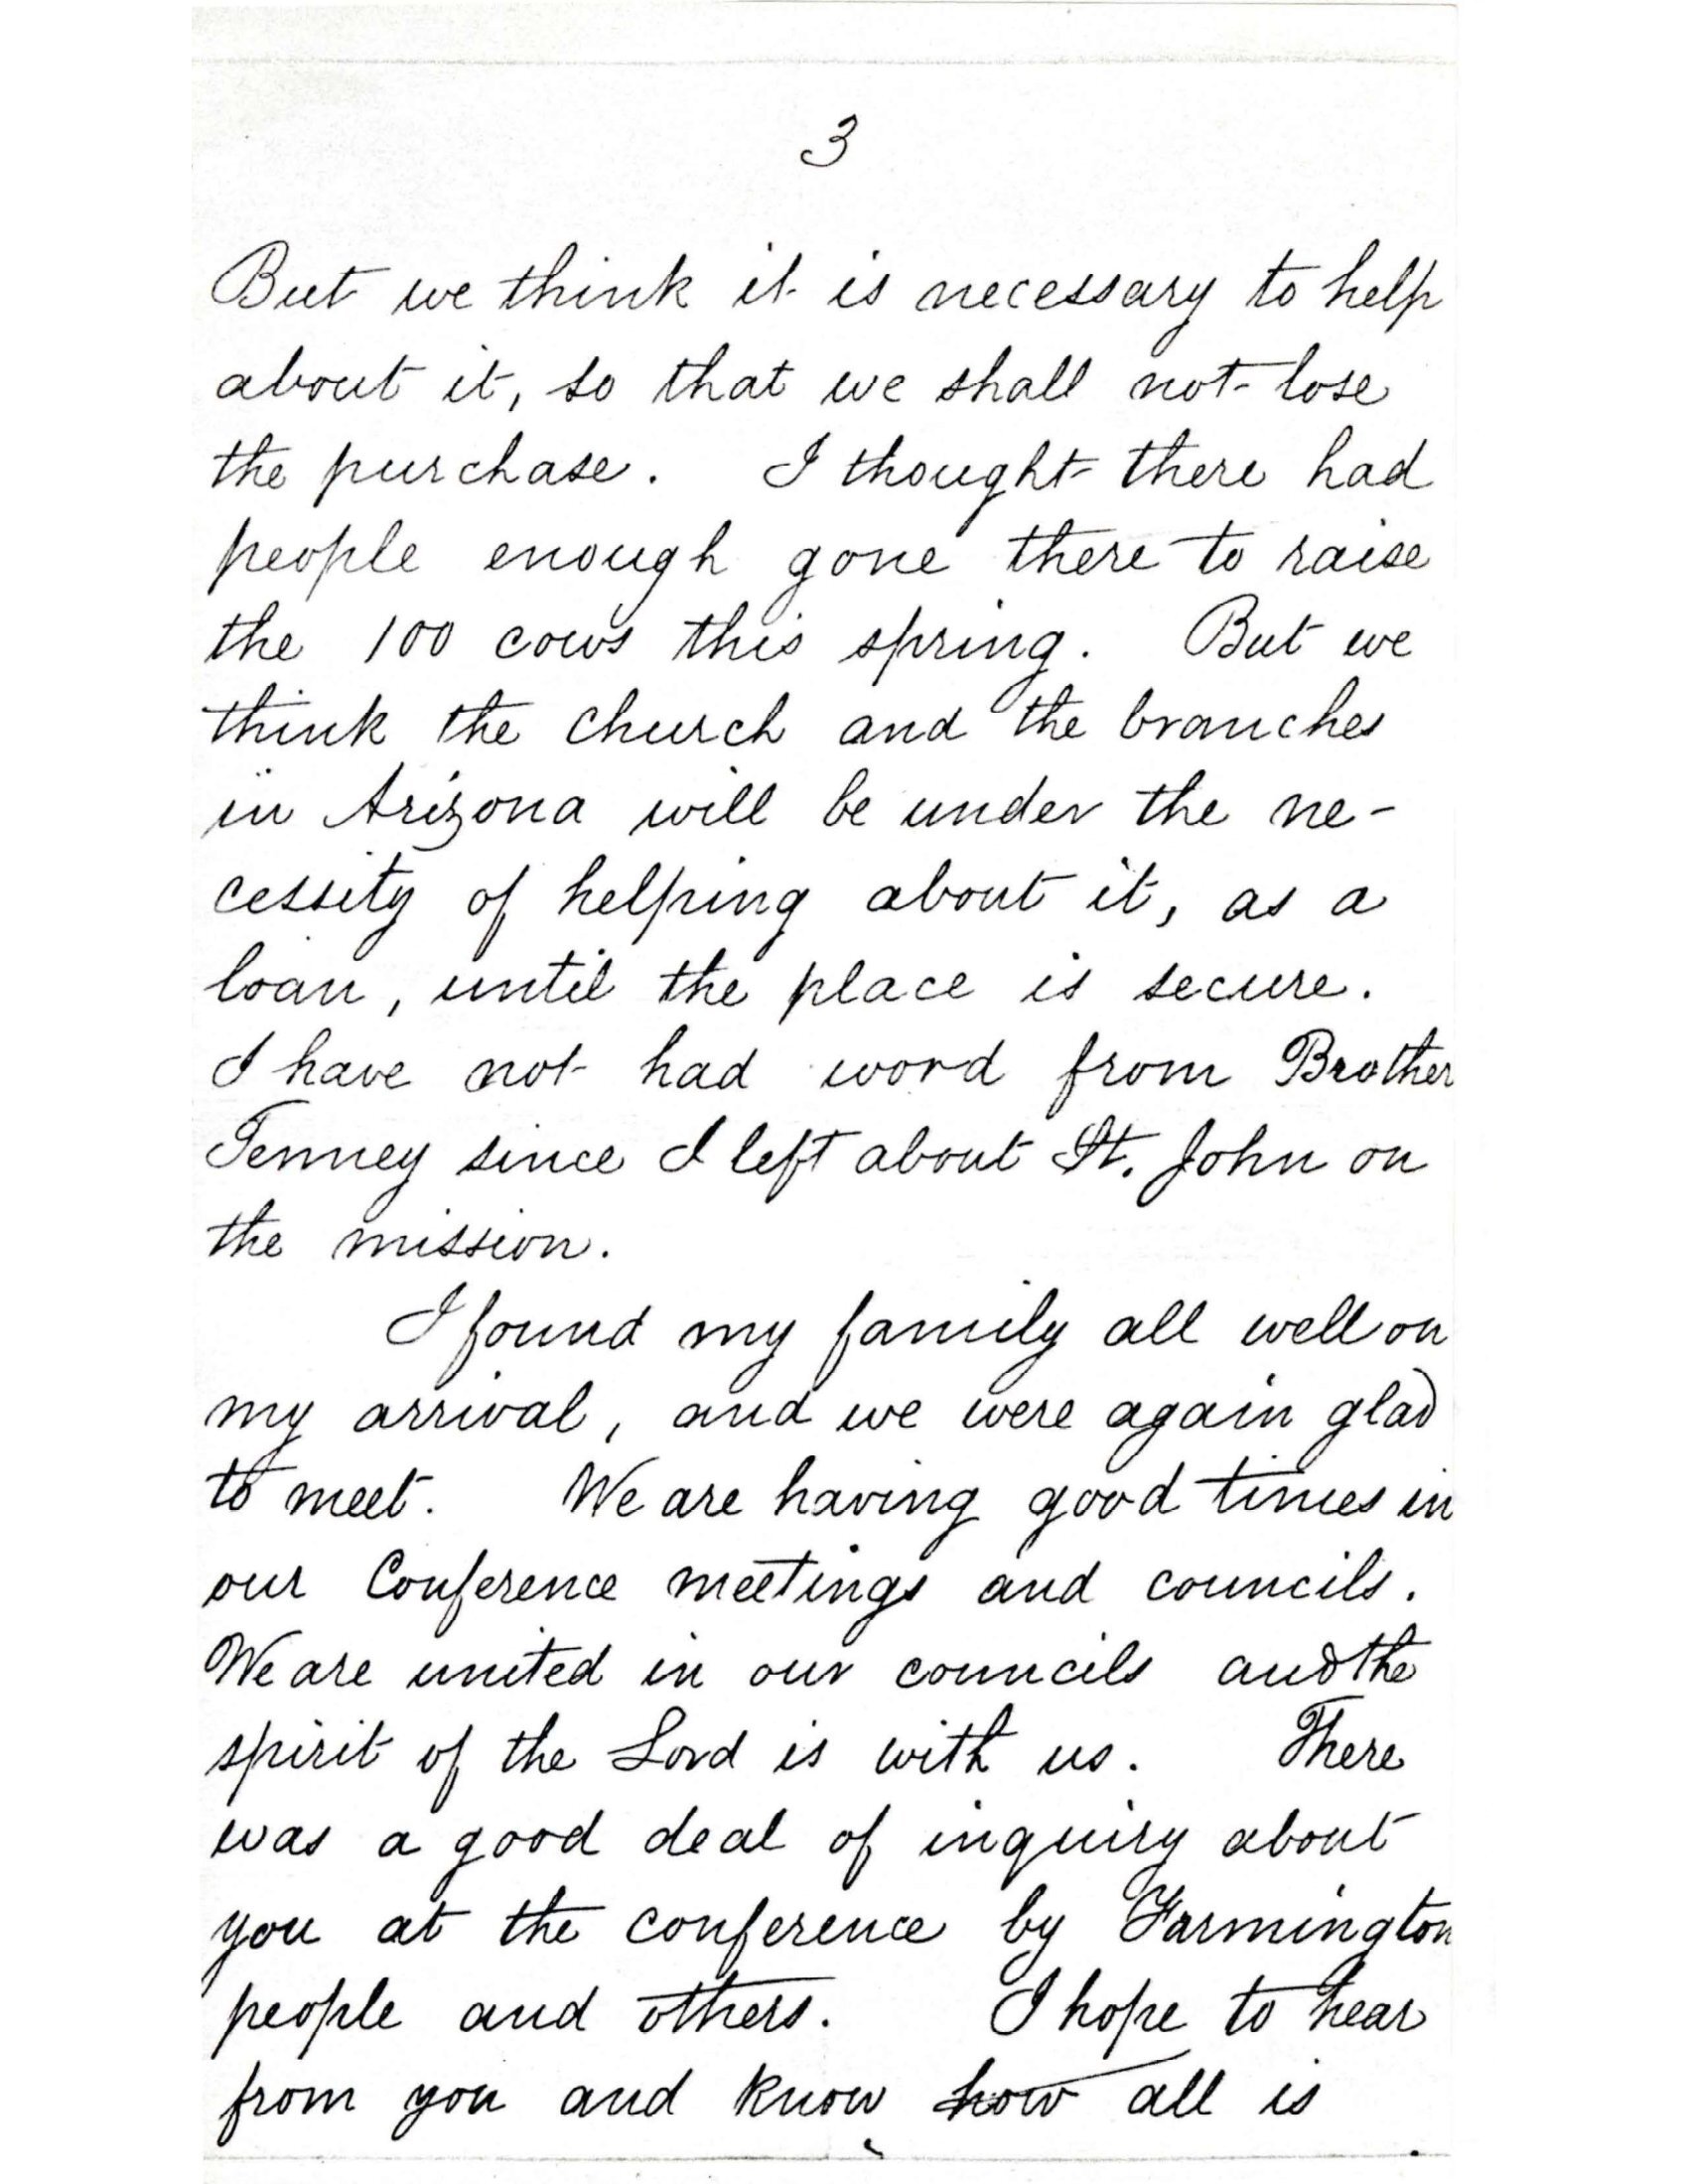 3
But we think it is necessary to help
about it, so that we shall not lose
the purchase. I thought there had
people enough gone there to raise
the 100 cows this spring. But we
think the church and the branches
in Arizona will be under the ne-
cessity of helping about it, as a
loan, until the place is secure.
I have not had word from Brother
Tenney since I left about St. John on
the mission.
I found my family all well on
my arrival, and we were again glad
to meet. We are having good times in
our Conference meetings and councils.
We are united in our councils and the
spirit of the Lord is with us. There
was a good deal of inquiry about
you at the conference by Farmington
people and others. I hope to hear
from you and know how all is